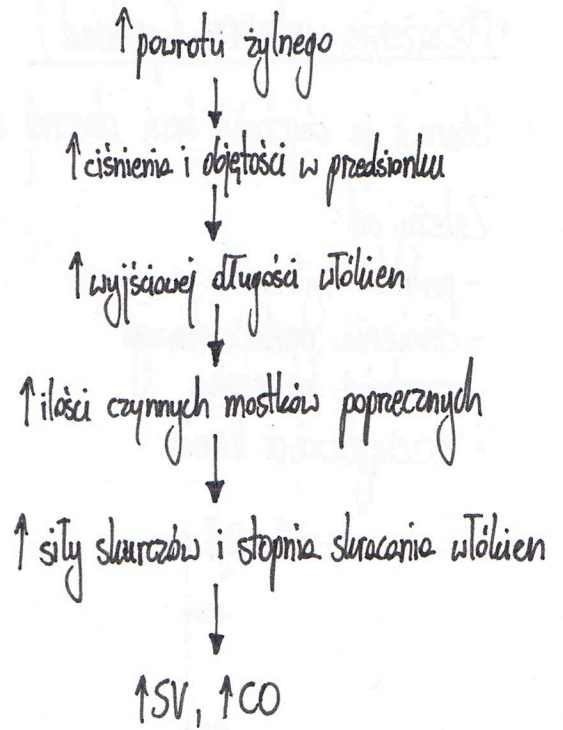 ↑ powrotu żylnego
↑ ciśnienia i objętości w przedsionku
↑ wyjściowej długości włókien
↑ ilości czynnych mostków poprzecznych
↑ siły skurczów i stopnia skracania włókien
↑SV, ↑CO